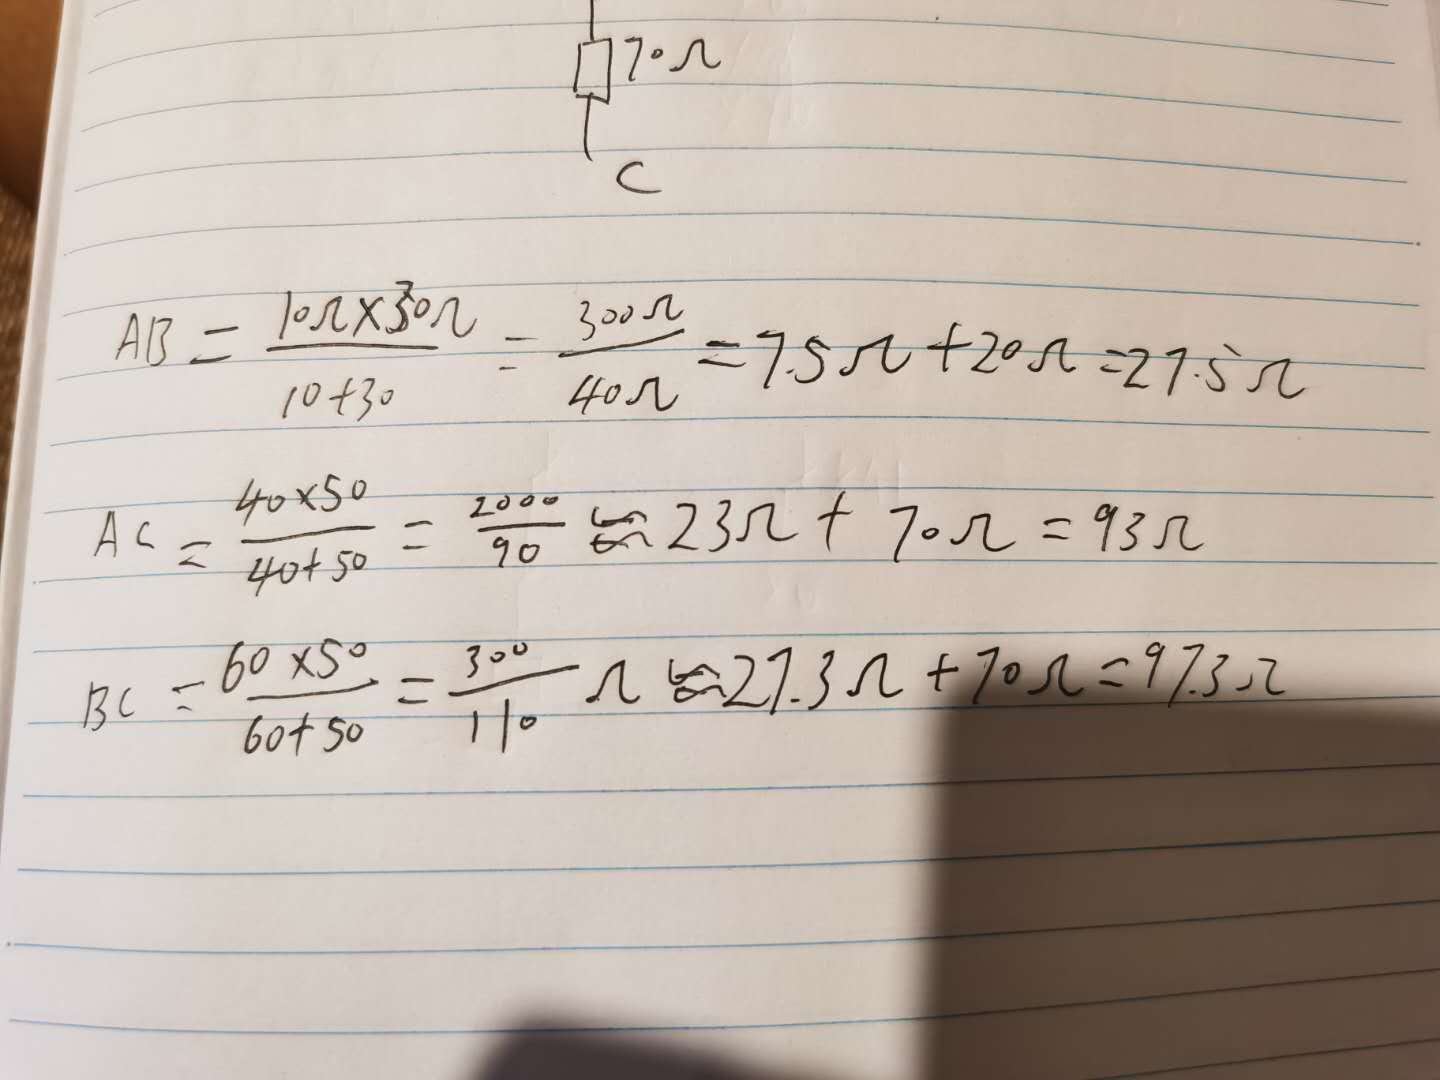 70Ω
C
AB = 10Ω×30Ω / 10+30 = 300Ω / 40Ω = 7.5Ω + 20Ω = 27.5Ω
AC = 40×50 / 40+50 = 2000 / 90 ≈ 23Ω + 70Ω = 93Ω
BC = 60×50 / 60+50 = 300 / 110 Ω ≈ 27.3Ω + 70Ω = 97.3Ω